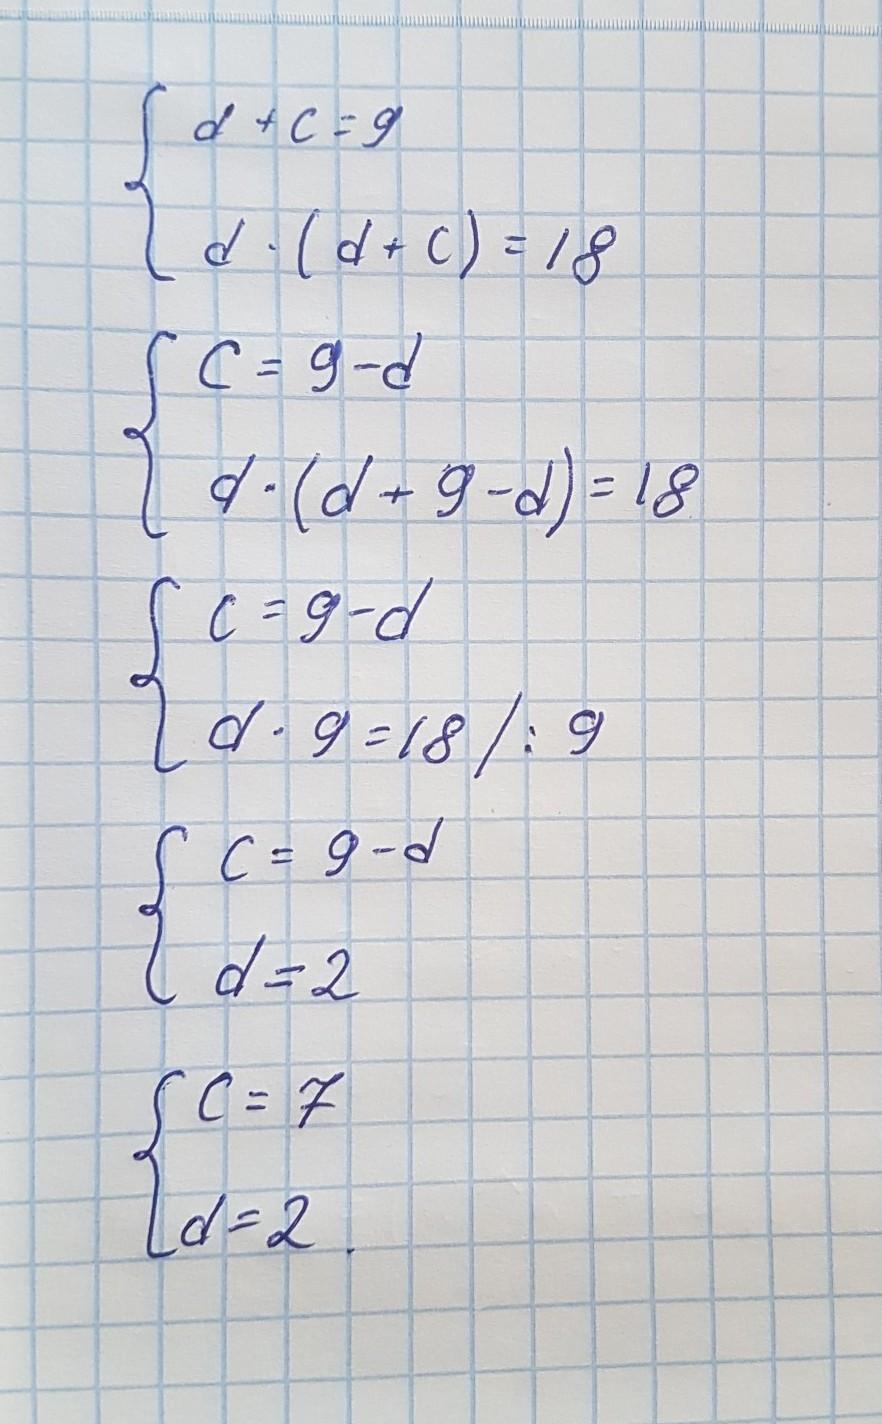 { d + c = 9
d · (d + c) = 18
{ c = 9 - d
d · (d + 9 - d) = 18
{ c = 9 - d
d · 9 = 18 / : 9
{ c = 9 - d
d = 2
{ c = 7
d = 2 .